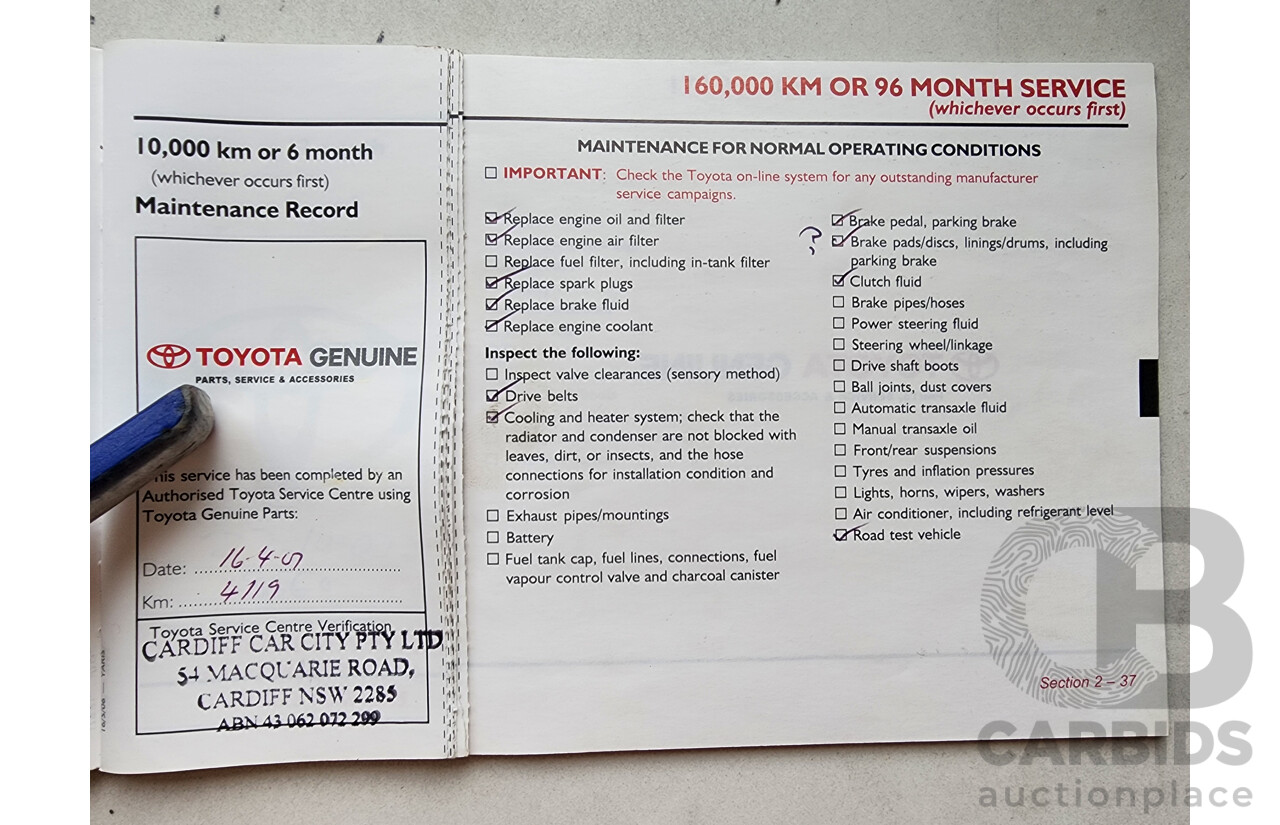 10,000 km or 6 month
(whichever occurs first)
Maintenance Record
TOYOTA GENUINE
PARTS, SERVICE & ACCESSORIES
his service has been completed by an
Authorised Toyota Service Centre using
Toyota Genuine Parts:
Date: 16-4-07
Km: 4119
Toyota Service Centre Verification
CARDIFF CAR CITY PTY LTD
54 MACQUARIE ROAD,
CARDIFF NSW 2285
ABN 43 062 072 299
160,000 KM OR 96 MONTH SERVICE
(whichever occurs first)
MAINTENANCE FOR NORMAL OPERATING CONDITIONS
IMPORTANT: Check the Toyota on-line system for any outstanding manufacturer
service campaigns.
Replace engine oil and filter
Replace engine air filter
Replace fuel filter, including in-tank filter
Replace spark plugs
Replace brake fluid
Replace engine coolant
Inspect the following:
Inspect valve clearances (sensory method)
Drive belts
Cooling and heater system; check that the
radiator and condenser are not blocked with
leaves, dirt, or insects, and the hose
connections for installation condition and
corrosion
Exhaust pipes/mountings
Battery
Fuel tank cap, fuel lines, connections, fuel
vapour control valve and charcoal canister
Brake pedal, parking brake
? Brake pads/discs, linings/drums, including
parking brake
Clutch fluid
Brake pipes/hoses
Power steering fluid
Steering wheel/linkage
Drive shaft boots
Ball joints, dust covers
Automatic transaxle fluid
Manual transaxle oil
Front/rear suspensions
Tyres and inflation pressures
Lights, horns, wipers, washers
Air conditioner, including refrigerant level
Road test vehicle
Section 2 – 37
CB
CARBIDS
auctionplace